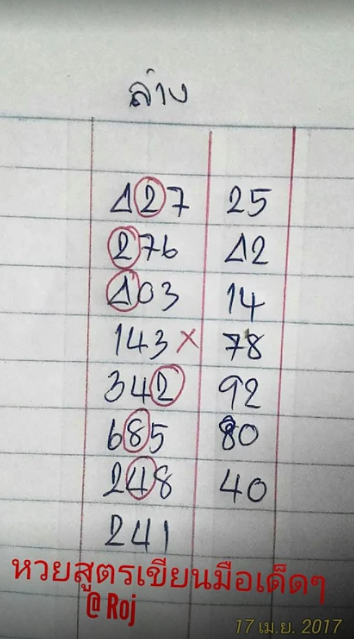 ล่าง
427 25
276 42
403 14
143 × 78
342 92
685 80
248 40
241
หวยสูตรเขียนมือเด็ดๆ
@ Roj
17 เม.ย. 2017